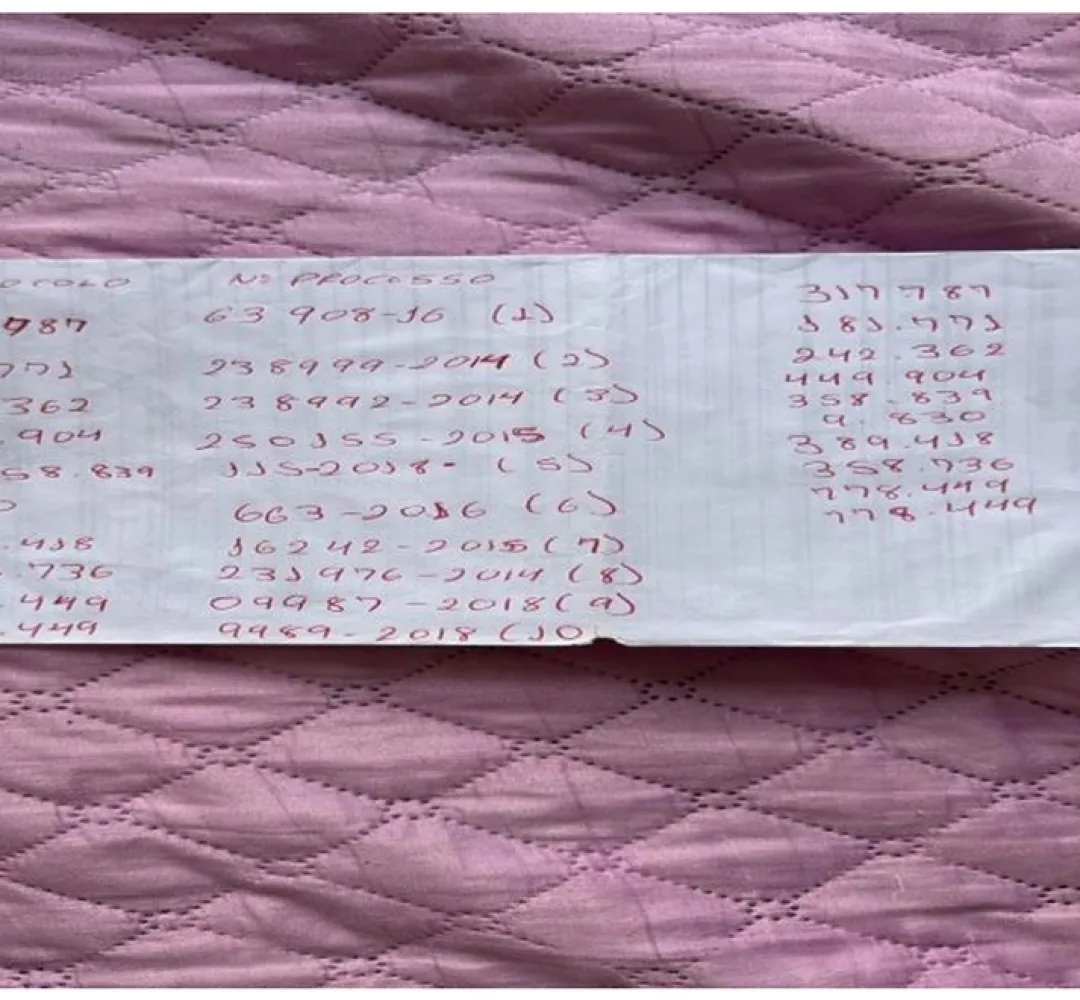 OCOLO Nº PROCESSO
787 63 908-16 (1)
771 238999-2014 (2)
362 238992-2014 (3)
.904 250155-2015 (4)
58.839 115-2018- (5)
O 663-2016 (6)
.418 16242-2015 (7)
.736 231976-2014 (8)
.449 09987-2018 (9)
.449 9989-2018 (10
317 787
181.771
242.362
449.904
358.839
9.830
389.418
358.736
778.449
778.449